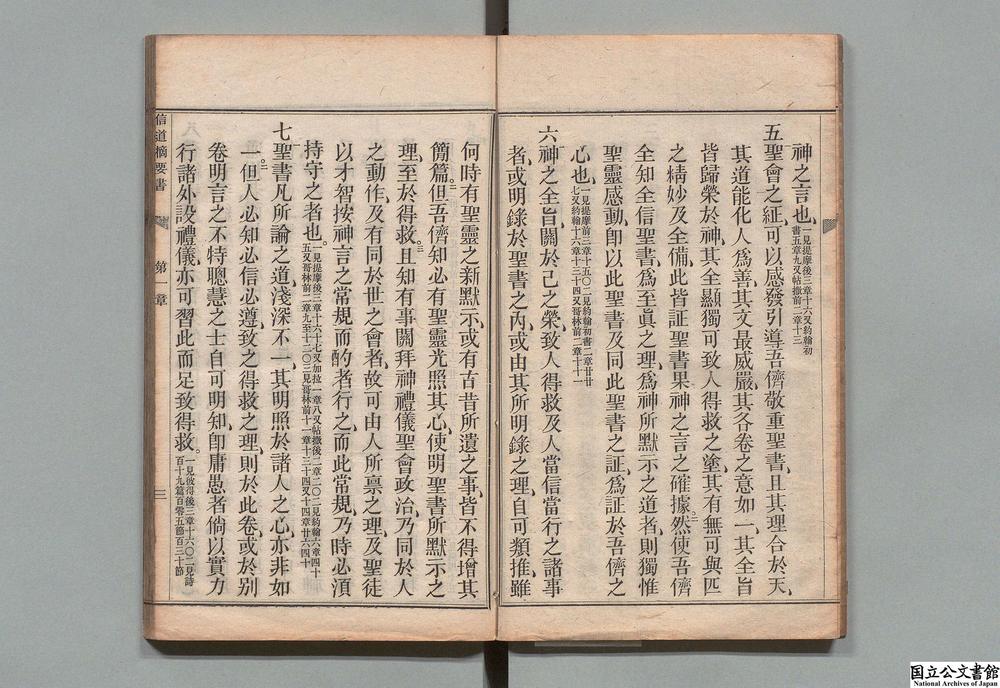 神之言也、一見提摩後三章十六又約翰初書五章九又帖撒前二章十三
五聖會之証、可以感發引導吾儕敬重聖書、且其理合於天、
其道能化人爲善、其文最威嚴、其各卷之意如一、其全旨
皆歸榮於神、其全顯獨可致人得救之塗、其有無可與匹
之精妙、及全備、此皆証聖書果神之言之確據、然使吾儕
全知全信聖書、爲至眞之理、爲神所默示之道者、則獨惟
聖靈感動、卽以此聖書、及同此聖書之証、爲証於吾儕之
心也、一見提摩前三章十五〇二見約翰初書二章二十廿七又約翰十六章十三十四又哥林前二章十十一
六神之全旨、關於己之榮、致人得救、及人當信當行之諸事
者、或明錄於聖書之內、或由其所明錄之理、自可類推、雖
何時有聖靈之新默示、或有古昔所遺之事、皆不得增其
簡篇、但吾儕知必有聖靈光照其心、使萌聖書所默示之
理、至於得救、且知有事關拜神禮儀、聖會政治、乃同於人
之動作、及有同於世之會者、故可由人所禀之理、及聖徒
以才智按神言之常規、而酌者行之、而此常規、乃時必須
持守之者也、一見提摩後三章十六十七又加拉一章八又帖撒後二章二〇二見約翰六章四十五又哥林前二章九至十二〇三見哥林前十一章十三十四又十四章廿六四十
七聖書凡所論之道、淺深不一、其明照於諸人之心、亦非如
一、但人必知必信必遵、致之得救之理、則於此卷、或於別
卷明言之、不特聰慧之士、自可明知、卽庸愚者、倘以實力
行諸外設禮儀、亦可習此而足致得救。一見彼得後三章十六〇二見詩百十九篇百零五節百三十節
信道摘要書
第一章
三
国立公文書館
National Archives of Japan